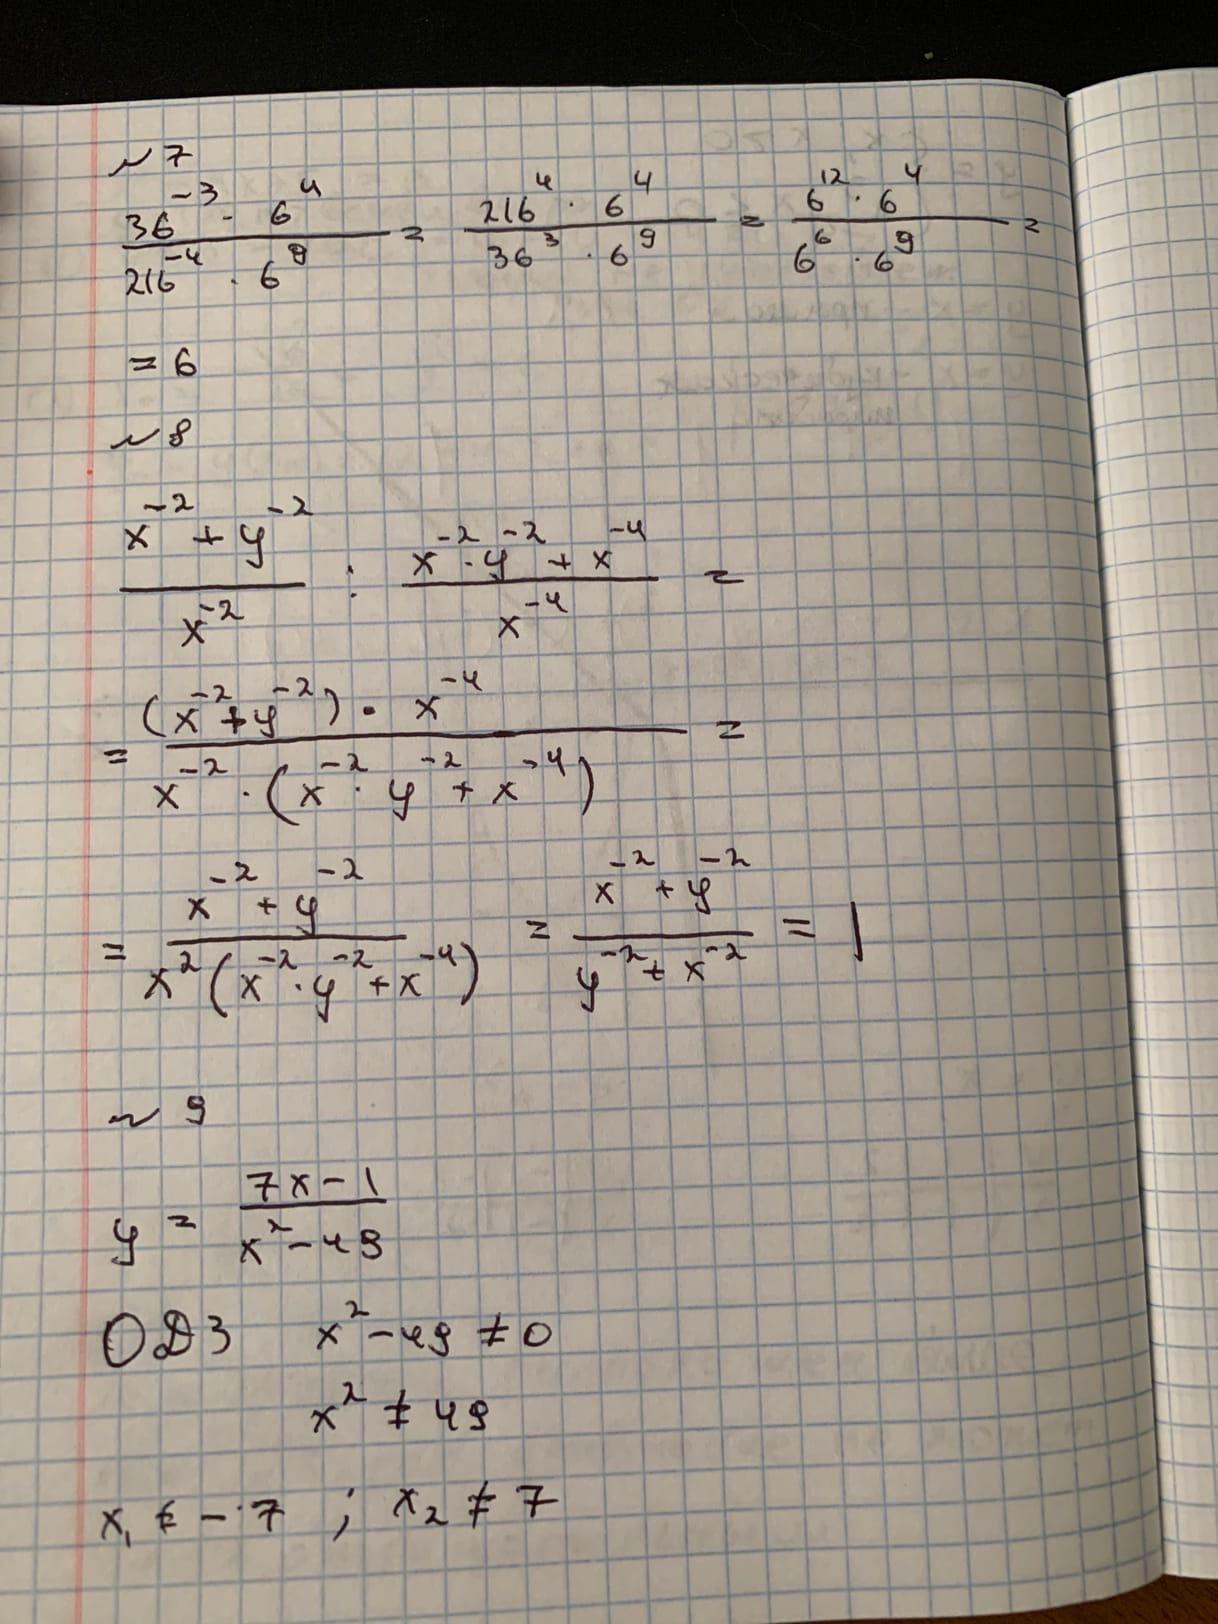 №7
(36^{-3} · 6^4)/(216^{-4} · 6^9) = (216^4 · 6^4)/(36^3 · 6^9) = (6^{12} · 6^4)/(6^6 · 6^9) =
= 6
№8
(x^{-2} + y^{-2})/(x^{-2}) : (x^{-2} · y^{-2} + x^{-4})/(x^{-4}) =
= ((x^{-2} + y^{-2}) · x^{-4})/(x^{-2} · (x^{-2} · y^{-2} + x^{-4})) =
= (x^{-2} + y^{-2})/(x^2 (x^{-2} · y^{-2} + x^{-4})) = (x^{-2} + y^{-2})/(y^{-2} + x^{-2}) = 1
№9
y = (7x - 1)/(x^2 - 49)
ОДЗ x^2 - 49 ≠ 0
x^2 ≠ 49
x_1 ≠ -7 ; x_2 ≠ 7